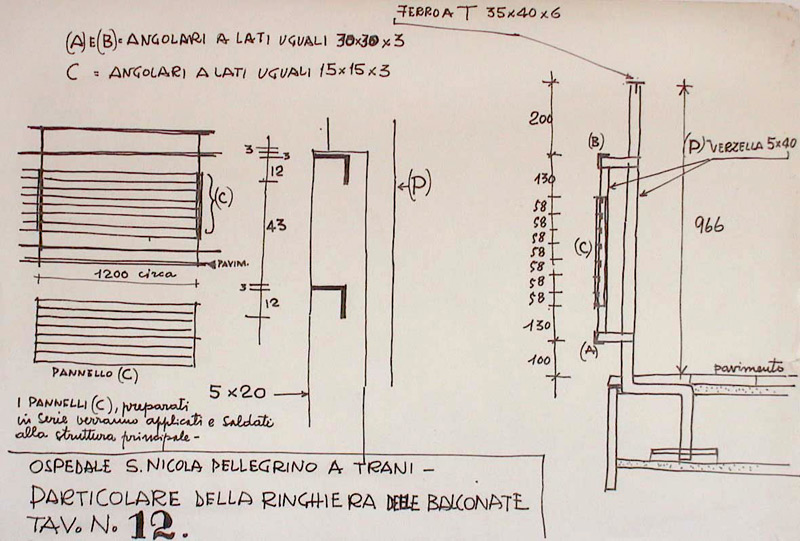 FERRO A T 35x40x6
(A) E (B) = ANGOLARI A LATI UGUALI 30x30x3
C = ANGOLARI A LATI UGUALI 15x15x3
200
(B)
(P) VERZELLA 5x40
130
58
58
58
58
58
58
58
(C)
966
130
(A)
100
pavimento
3
3
12
43
3
12
(P)
(C)
PAVIM.
1200 circa
PANNELLO (C)
5x20
I PANNELLI (C), preparati
in serie verranno applicati e saldati
alla struttura principale -
OSPEDALE S. NICOLA PELLEGRINO A TRANI -
PARTICOLARE DELLA RINGHIERA DELLE BALCONATE
TAV. N. 12.